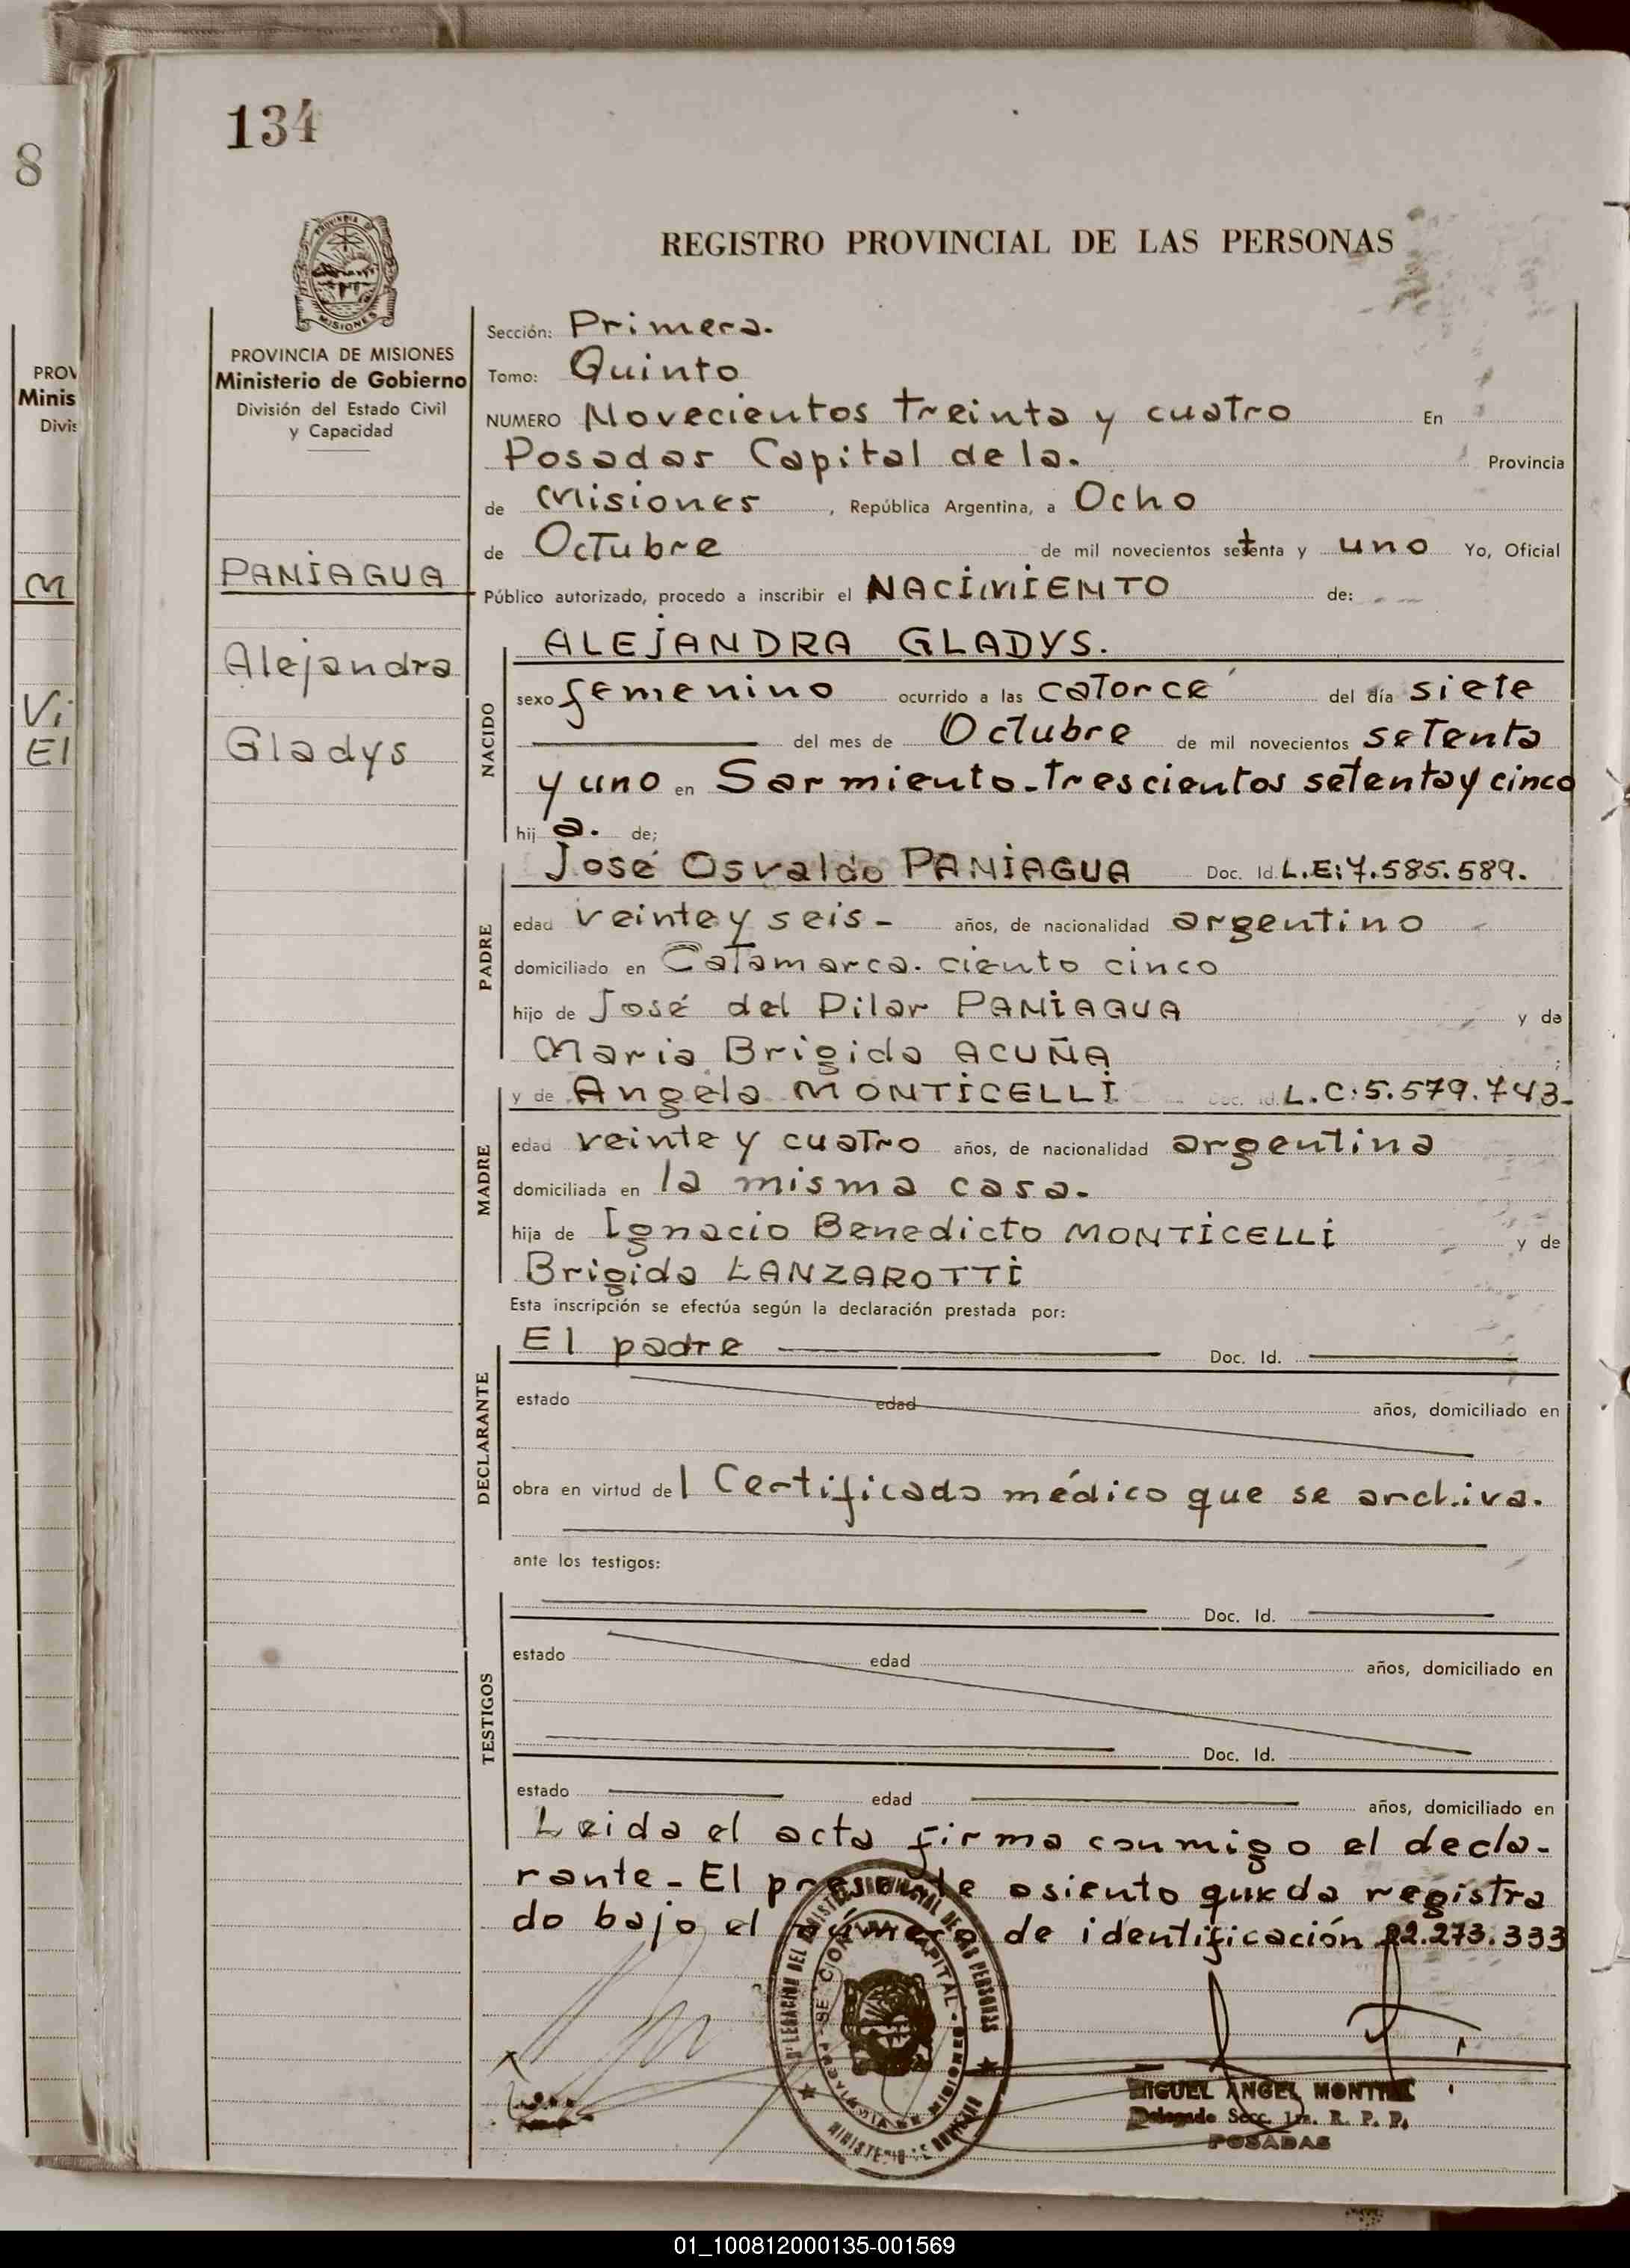 134
8
REGISTRO PROVINCIAL DE LAS PERSONAS
PROVINCIA
MISIONES
PROVINCIA DE MISIONES
Ministerio de Gobierno
División del Estado Civil
y Capacidad
PROV
Minis
Divis
M
Vi
El
PANIAGUA
Alejandra
Gladys
Sección: Primera.
Tomo: Quinto
NUMERO Novecientos treinta y cuatro En
Posadas Capital de la. Provincia
de Misiones , República Argentina, a Ocho
de Octubre de mil novecientos setenta y uno Yo, Oficial
Público autorizado, procedo a inscribir el NACIMIENTO de:
NACIDO
ALEJANDRA GLADYS.
sexo femenino ocurrido a las catorce del día siete
del mes de Octubre de mil novecientos setenta
y uno en Sarmiento-trescientos setenta y cinco
hij a. de;
PADRE
José Osvaldo PANIAGUA Doc. Id. L.E:7.585.589.
edad veinte y seis- años, de nacionalidad argentino
domiciliado en Catamarca. ciento cinco
hijo de José del Pilar PANIAGUA y de
Maria Brigida ACUÑA ;
MADRE
y de Angela MONTICELLI Doc. Id. L.C:5.579.743-
edad veinte y cuatro años, de nacionalidad argentina
domiciliada en la misma casa.
hija de Ignacio Benedicto MONTICELLI y de
Brigida LANZAROTTI
Esta inscripción se efectúa según la declaración prestada por:
DECLARANTE
El padre Doc. Id.
estado edad años, domiciliado en
obra en virtud del Certificado médico que se archiva.
ante los testigos:
TESTIGOS
Doc. Id.
estado edad años, domiciliado en
Doc. Id.
estado edad años, domiciliado en
Leida el acta firma conmigo el decla-
rante-El presente asiento queda registra
do bajo el número de identificación 22.273.333
DELEGACION DEL REGISTRO PROVINCIAL DE LAS PERSONAS
SECCION CAPITAL
PROVINCIA DE MISIONES
MINISTERIO DE GOBIERNO
MIGUEL ANGEL
Delegado Secc. 1ra. R. P. P.
POSADAS
01_100812000135-001569